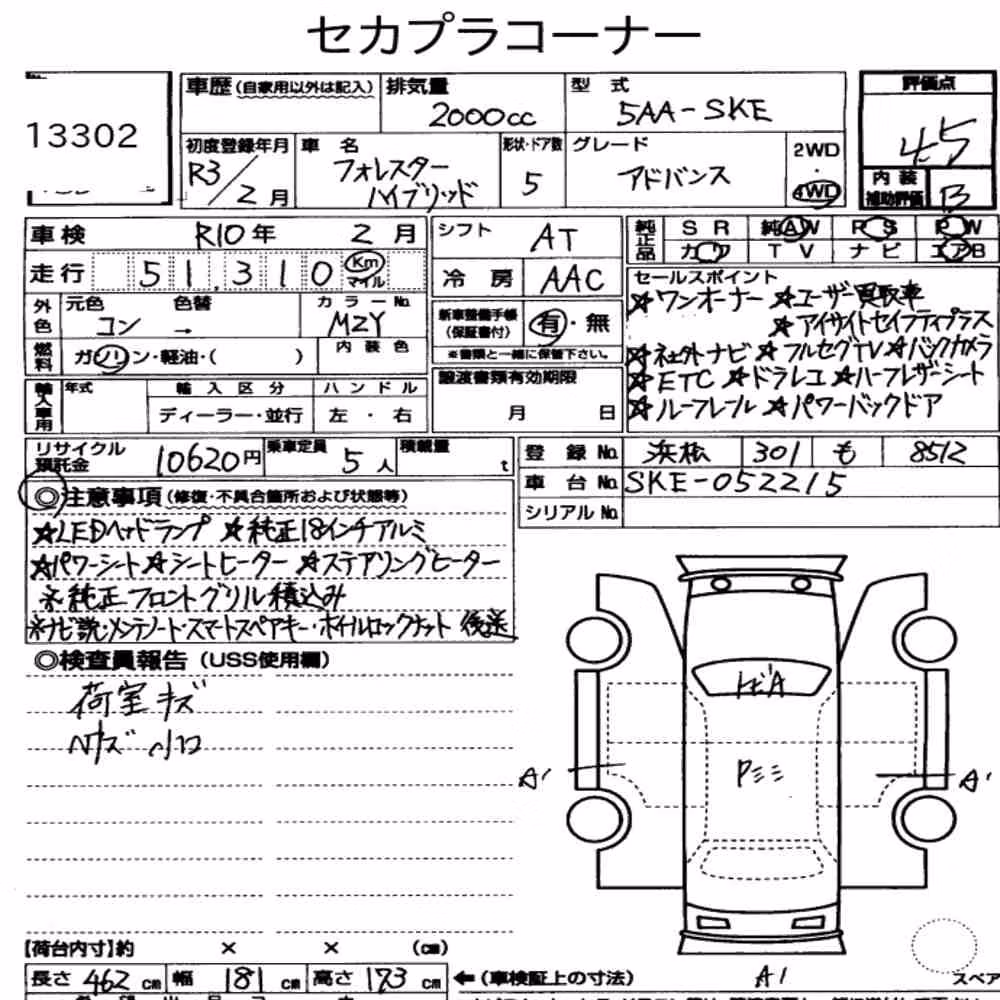 セカプラコーナー
13302
車歴(自家用以外は記入) 排気量 2000cc 型式 5AA-SKE 評価点 4.5
初度登録年月 R3/2月 車名 フォレスター ハイブリッド 形状・ドア数 5 グレード アドバンス 2WD・4WD 内装補助評価 B
車検 R10年 2月 シフト AT 純正品 SR 純AW PS PW
走行 51,310 Km マイル 冷房 AAC カワ TV ナビ エアB
外色 元色 コン 色替 → カラーNo. MZY 新車整備手帳(保証書付) 有・無 セールスポイント
※書類と一緒に保管下さい。
☆ワンオーナー ☆ユーザー買取車
☆アイサイトセイフティプラス
燃料 ガソリン・軽油・( ) 内装色
☆社外ナビ☆フルセグTV☆バックカメラ
輸入車用 年式 輸入区分 ハンドル 譲渡書類有効期限
☆ETC ☆ドラレコ☆ハーフレザーシート
ディーラー・並行 左・右 月 日
☆ルーフレール☆パワーバックドア
リサイクル預託金 10620円 乗車定員 5人 積載量 t 登録No. 浜松 301 も 8512
◎注意事項(修復・不具合箇所および状態等) 車台No. SKE-052215
シリアルNo.
☆LEDヘッドランプ ☆純正18インチアルミ
☆パワーシート☆シートヒーター ☆ステアリングヒーター
※純正フロントグリル積込み
※ナビ説・メンテノート・スマートスペアキー・ホイルロックナット 後送
◎検査員報告(USS使用欄)
荷室キズ
トビA
Pミミ
A1 A1
【荷台内寸】約 × × (cm)
長さ 462cm 幅 181cm 高さ 173cm ←(車検証上の寸法) A1 スペア